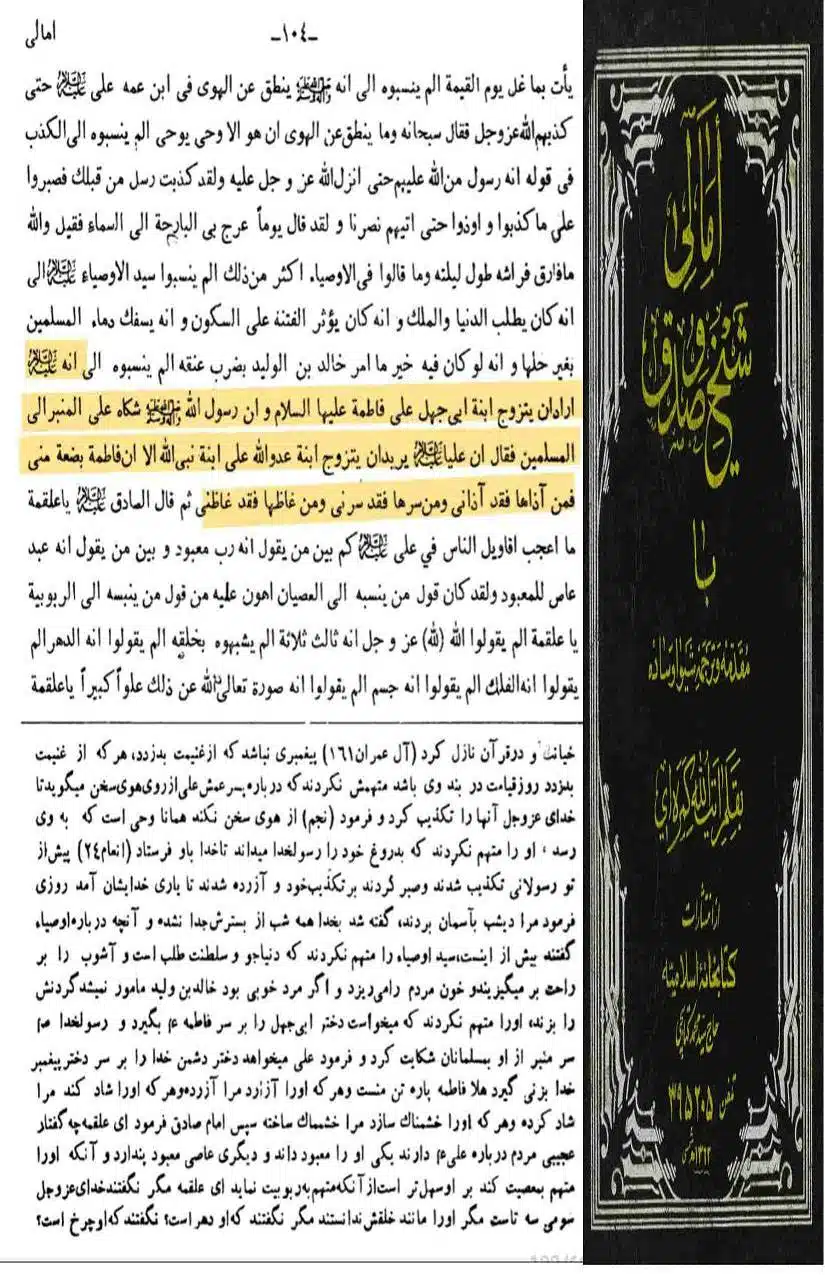 امالی
-۱۰٤-
یأت بما غل یوم القیمة الم ینسبوه الی انه ﷺ ینطق عن الهوی فی ابن عمه علی علیه السلام حتی
کذبهم الله عز وجل فقال سبحانه وما ینطق عن الهوی ان هو الا وحی یوحی الم ینسبوه الی الکذب
فی قوله انه رسول من الله علیهم حتی انزل الله عز و جل علیه ولقد کذبت رسل من قبلك فصبروا
علی ما کذبوا و اوذوا حتی اتیهم نصرنا و لقد قال یوماً عرج بی البارحة الی السماء فقیل والله
مافارق فراشه طول لیلته وما قالوا فی الاوصیاء اکثر من ذلك الم ینسبوا سید الاوصیاء علیه السلام الی
انه کان یطلب الدنیا والملك و انه کان یؤثر الفتنة علی السکون و انه یسفك دماء المسلمین
بغیر حلها و انه لو کان فیه خیر ما امر خالد بن الولید بضرب عنقه الم ینسبوه الی انه علیه السلام
ارادان یتزوج ابنة ابی جهل علی فاطمة علیها السلام و ان رسول الله ﷺ شکاه علی المنبر الی
المسلمین فقال ان علیا علیه السلام یریدان یتزوج ابنة عدوالله علی ابنة نبی الله الا ان فاطمة بضعة منی
فمن آذاها فقد آذانی ومن سرها فقد سرنی ومن غاظها فقد غاظنی ثم قال الصادق علیه السلام یاعلقمة
ما اعجب اقاویل الناس في علی علیه السلام کم بین من یقول انه رب معبود و بین من یقول انه عبد
عاص للمعبود ولقد کان قول من ینسبه الی العصیان اهون علیه من قول من ینسبه الی الربوبیة
یا علقمة الم یقولوا الله (لله) عز و جل انه ثالث ثلاثة الم یشبهوه بخلقه الم یقولوا انه الدهر الم
یقولوا انه الفلك الم یقولوا انه جسم الم یقولوا انه صورة تعالی الله عن ذلك علواً کبیراً یاعلقمة
خیانت و درقرآن نازل کرد (آل عمران ۱٦۱) پیغمبری نباشد که ازغنیمت بدزدد، هر که از غنیمت
بدزدد روزقیامت در بند وی باشد متهمش نکردند که درباره پسرعمش علی از روی هوی سخن میگوید تا
خدای عزوجل آنها را تکذیب کرد و فرمود (نجم) از هوی سخن نکند همانا وحی است که به وی
رسد، او را متهم نکردند که بدروغ خود را رسولخدا میداند تاخدا باو فرستاد (انعام ۲٤) پیش از
تو رسولانی تکذیب شدند وصبر کردند بر تکذیب خود و آزرده شدند تا یاری خدایشان آمد روزی
فرمود مرا دیشب بآسمان بردند، گفته شد بخدا همه شب از بسترش جدا نشده و آنچه درباره اوصیاء
گفتند بیش از اینست، سید اوصیاء را متهم نکردند که دنیاجو و سلطنت طلب است و آشوب را بر
راحت بر میگزیند و خون مردم رامی ریزد و اگر مرد خوبی بود خالدبن ولید مامور نمیشد گردنش
را بزند، اورا متهم نکردند که میخواست دختر ابی جهل را بر سر فاطمه ع بگیرد و رسولخدا ص
سر منبر از او بمسلمانان شکایت کرد و فرمود علی میخواهد دختر دشمن خدا را بر سر دختر پیغمبر
خدا بزنی گیرد هلا فاطمه پاره تن منست وهر که اورا آزارد مرا آزرده وهر که اورا شاد کند مرا
شاد کرده وهر که اورا خشمناك سازد مرا خشمناك ساخته سپس امام صادق فرمود ای علقمه چه گفتار
عجیبی مردم درباره علی ع دارند یکی او را معبود داند و دیگری عاصی معبود پندارد و آنکه اورا
متهم بمعصیت کند بر او سهل تر است از آنکه متهم به ربوبیت نماید ای علقمه مگر نگفتند خدای عزوجل
سومی سه تاست مگر اورا مانند خلقش ندانستند مگر نگفتند که او دهر است؟ نگفتند که او چرخ است؟
أمالی
شیخ صدوق
با
مقدمه و ترجمه شیوا و ساده
بقلم آیت الله کمره ای
از انتشارات
کتابخانه اسلامیه
تلفن ۳۹۵۲۰۵